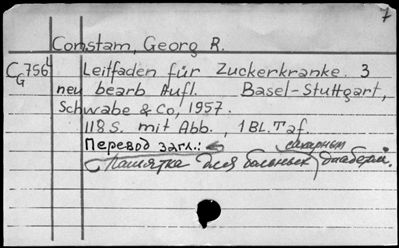 7
Constam, Georg R.
C 756⁴ Leitfaden für Zuckerkranke. 3
G neu bearb Aufl. Basel-Stuttgart,
Schwabe & Co, 1957.
118 S. mit Abb., 1 Bl. Taf.
Перевод загл.: сахарным
Памятка для больных диабетом.